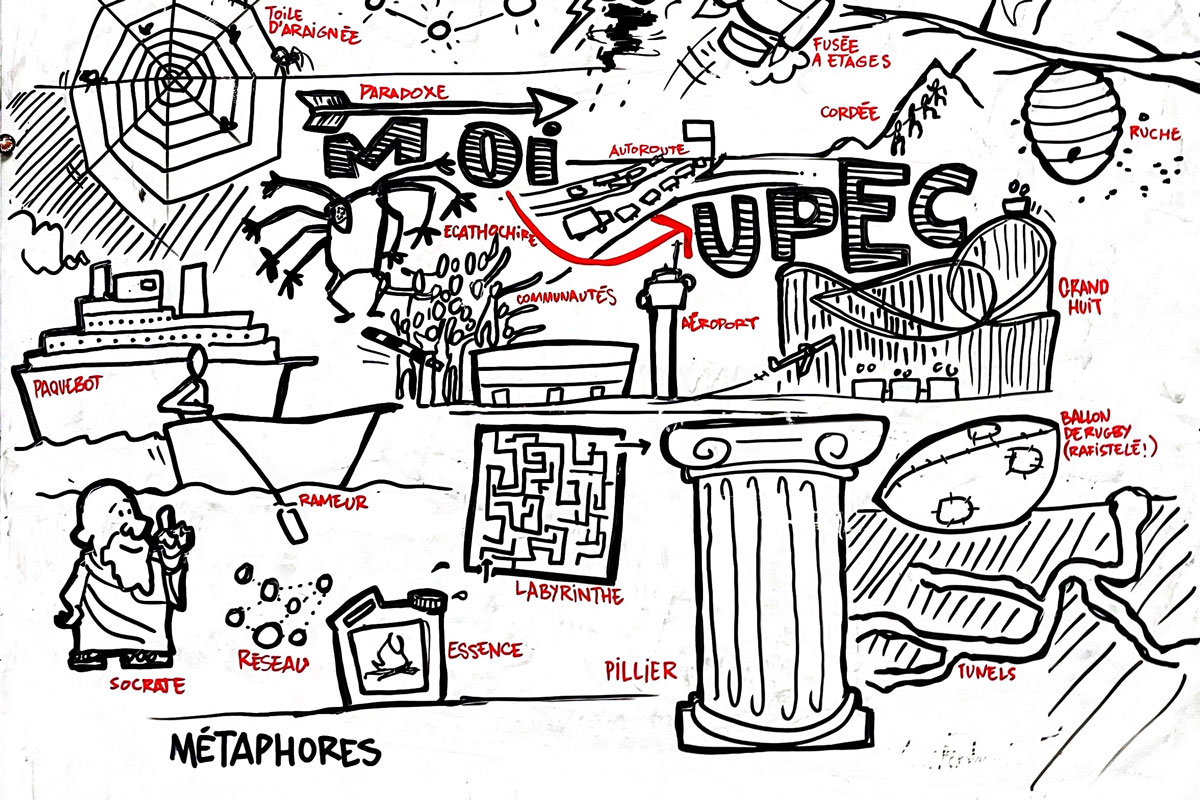 TOILE
D'ARAIGNÉE
FUSÉE
A ETAGES
PARADOXE
CORDÉE
RUCHE
MOi
AUTOROUTE
UPEC
ECATHOCHIRE
COMMUNAUTÉS
AÉROPORT
GRAND
HUIT
PAQUEBOT
BALLON
DE RUGBY
(RAFISTELÉ!)
RAMEUR
LABYRINTHE
RÉSEAU
ESSENCE
PILLIER
TUNELS
SOCRATE
MÉTAPHORES